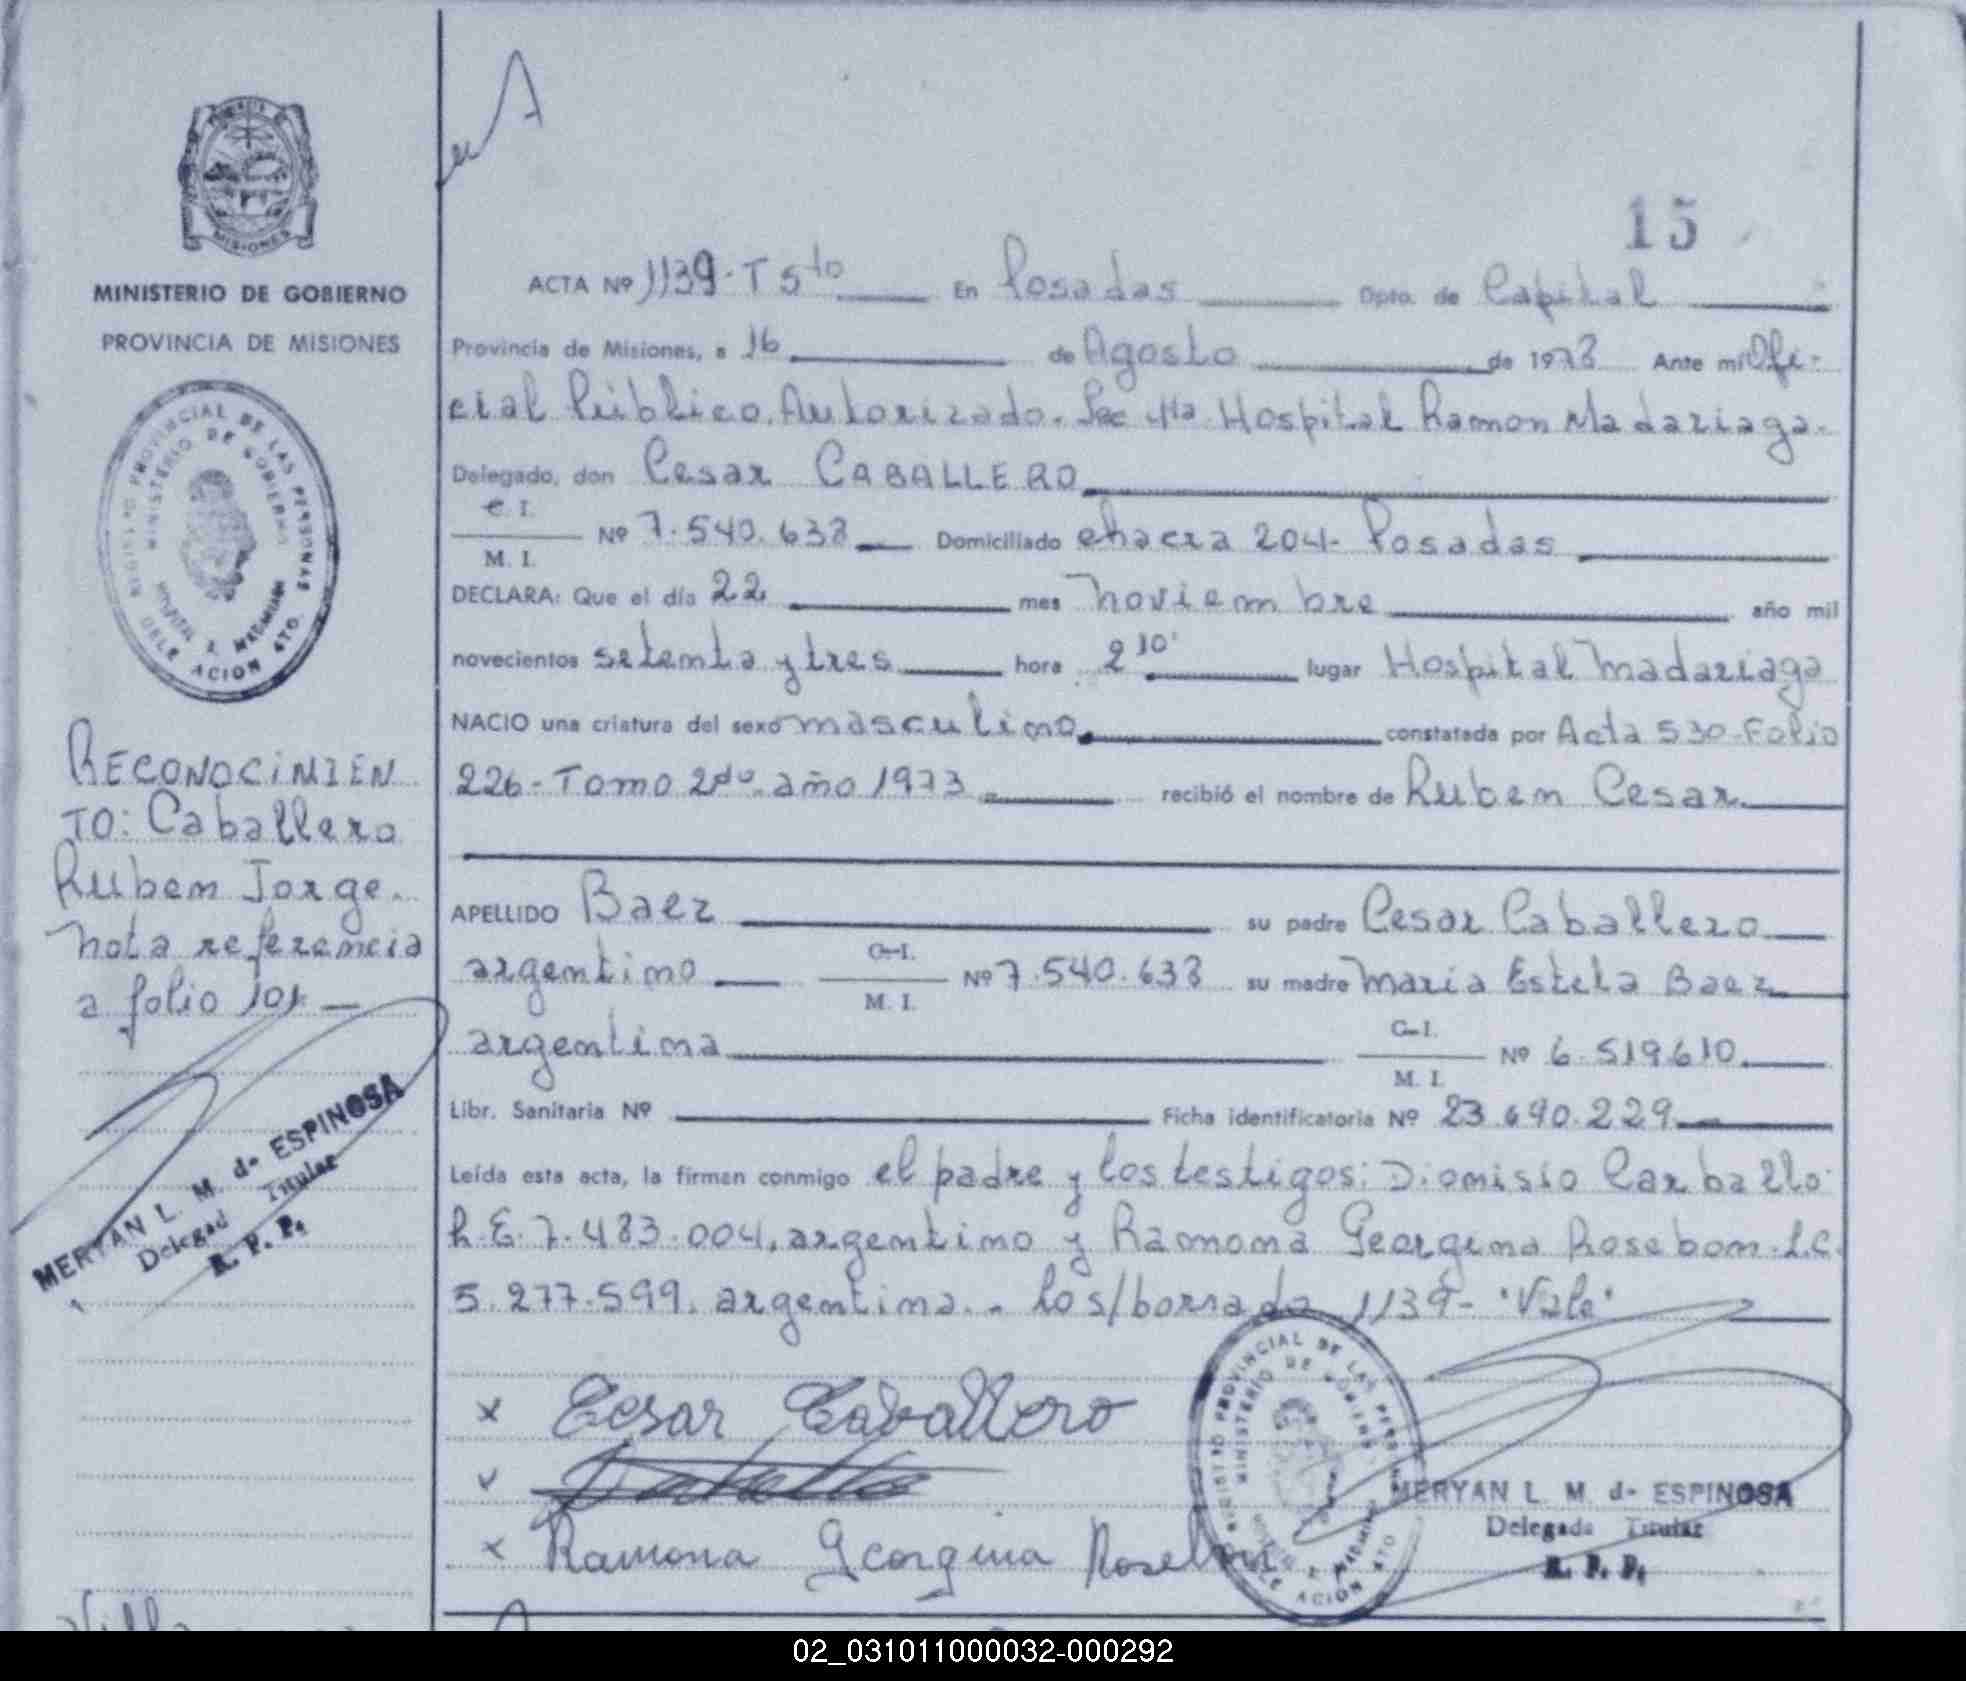 MISIONES
MINISTERIO DE GOBIERNO
PROVINCIA DE MISIONES
REGISTRO PROVINCIAL DE LAS PERSONAS
MINISTERIO DE GOBIERNO
HOSPITAL R. MADARIAGA
DELEGACION 4TO.
RECONOCIMIEN
TO: Caballero
Ruben Jorge.
nota referencia
a folio 101.
MERYAN L. M. de ESPINOSA
Delegada Titular
R. P. P.
15
ACTA Nº 1139-T 5to En Posadas Dpto. de Capital
Provincia de Misiones, a 16 de Agosto de 1978 Ante mi Ofi-
cial Público Autorizado. Sec 4ta Hospital Ramon Madariaga.
Delegado, don Cesar CABALLERO
C. I.
M. I. Nº 7.540.638 Domiciliado chacra 204- Posadas
DECLARA: Que el día 22 mes noviembre año mil
novecientos setenta y tres hora 2 10' lugar Hospital Madariaga
NACIO una criatura del sexo masculino constatada por Acta 530-Folio
226-Tomo 2do. año 1973 recibió el nombre de Ruben Cesar
APELLIDO Baez su padre Cesar Caballero
argentino C-I. M. I. Nº 7.540.638 su madre Maria Estela Baez
argentina C-I. M. I. Nº 6.519.610.
Libr. Sanitaria Nº Ficha identificatoria Nº 23.690.229
Leída esta acta, la firman conmigo el padre y los testigos: Dionisio Carballo
L.E. 7.483.004, argentino y Ramona Georgina Rosebom. L.C.
5.277.599. argentina.- Lo s/borrado 1139- "Vale"
x Cesar Caballero
x Ramona Georgina
REGISTRO PROVINCIAL DE LAS PERSONAS
MINISTERIO DE GOBIERNO
DELEGACION 4TO
MERYAN L. M. de ESPINOSA
Delegada Titular
R. P. P.
02_031011000032-000292